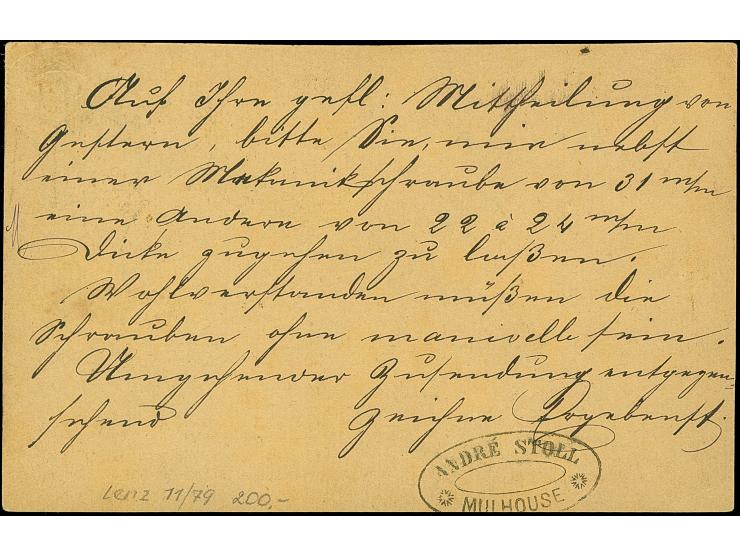 Auf Ihre gefl: Mittheilung von
Gestern, bitte Sie, mir nebst
einer Mekanikschraube von 31 m/m
eine Andere von 22 à 24 m/m
Dicke zugehen zu laßen.
Wohlverstanden müßen die
Schrauben ohne manivelle sein.
Umgehender Zusendung entgegen=
sehend zeichne Ergebenst.
ANDRÉ STOLL
MULHOUSE
Lenz 11/79 200.-